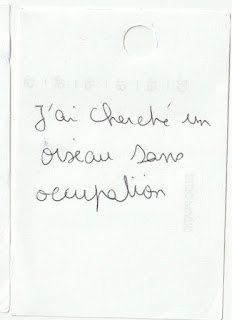 J'ai cherché un
oiseau sans
occupation